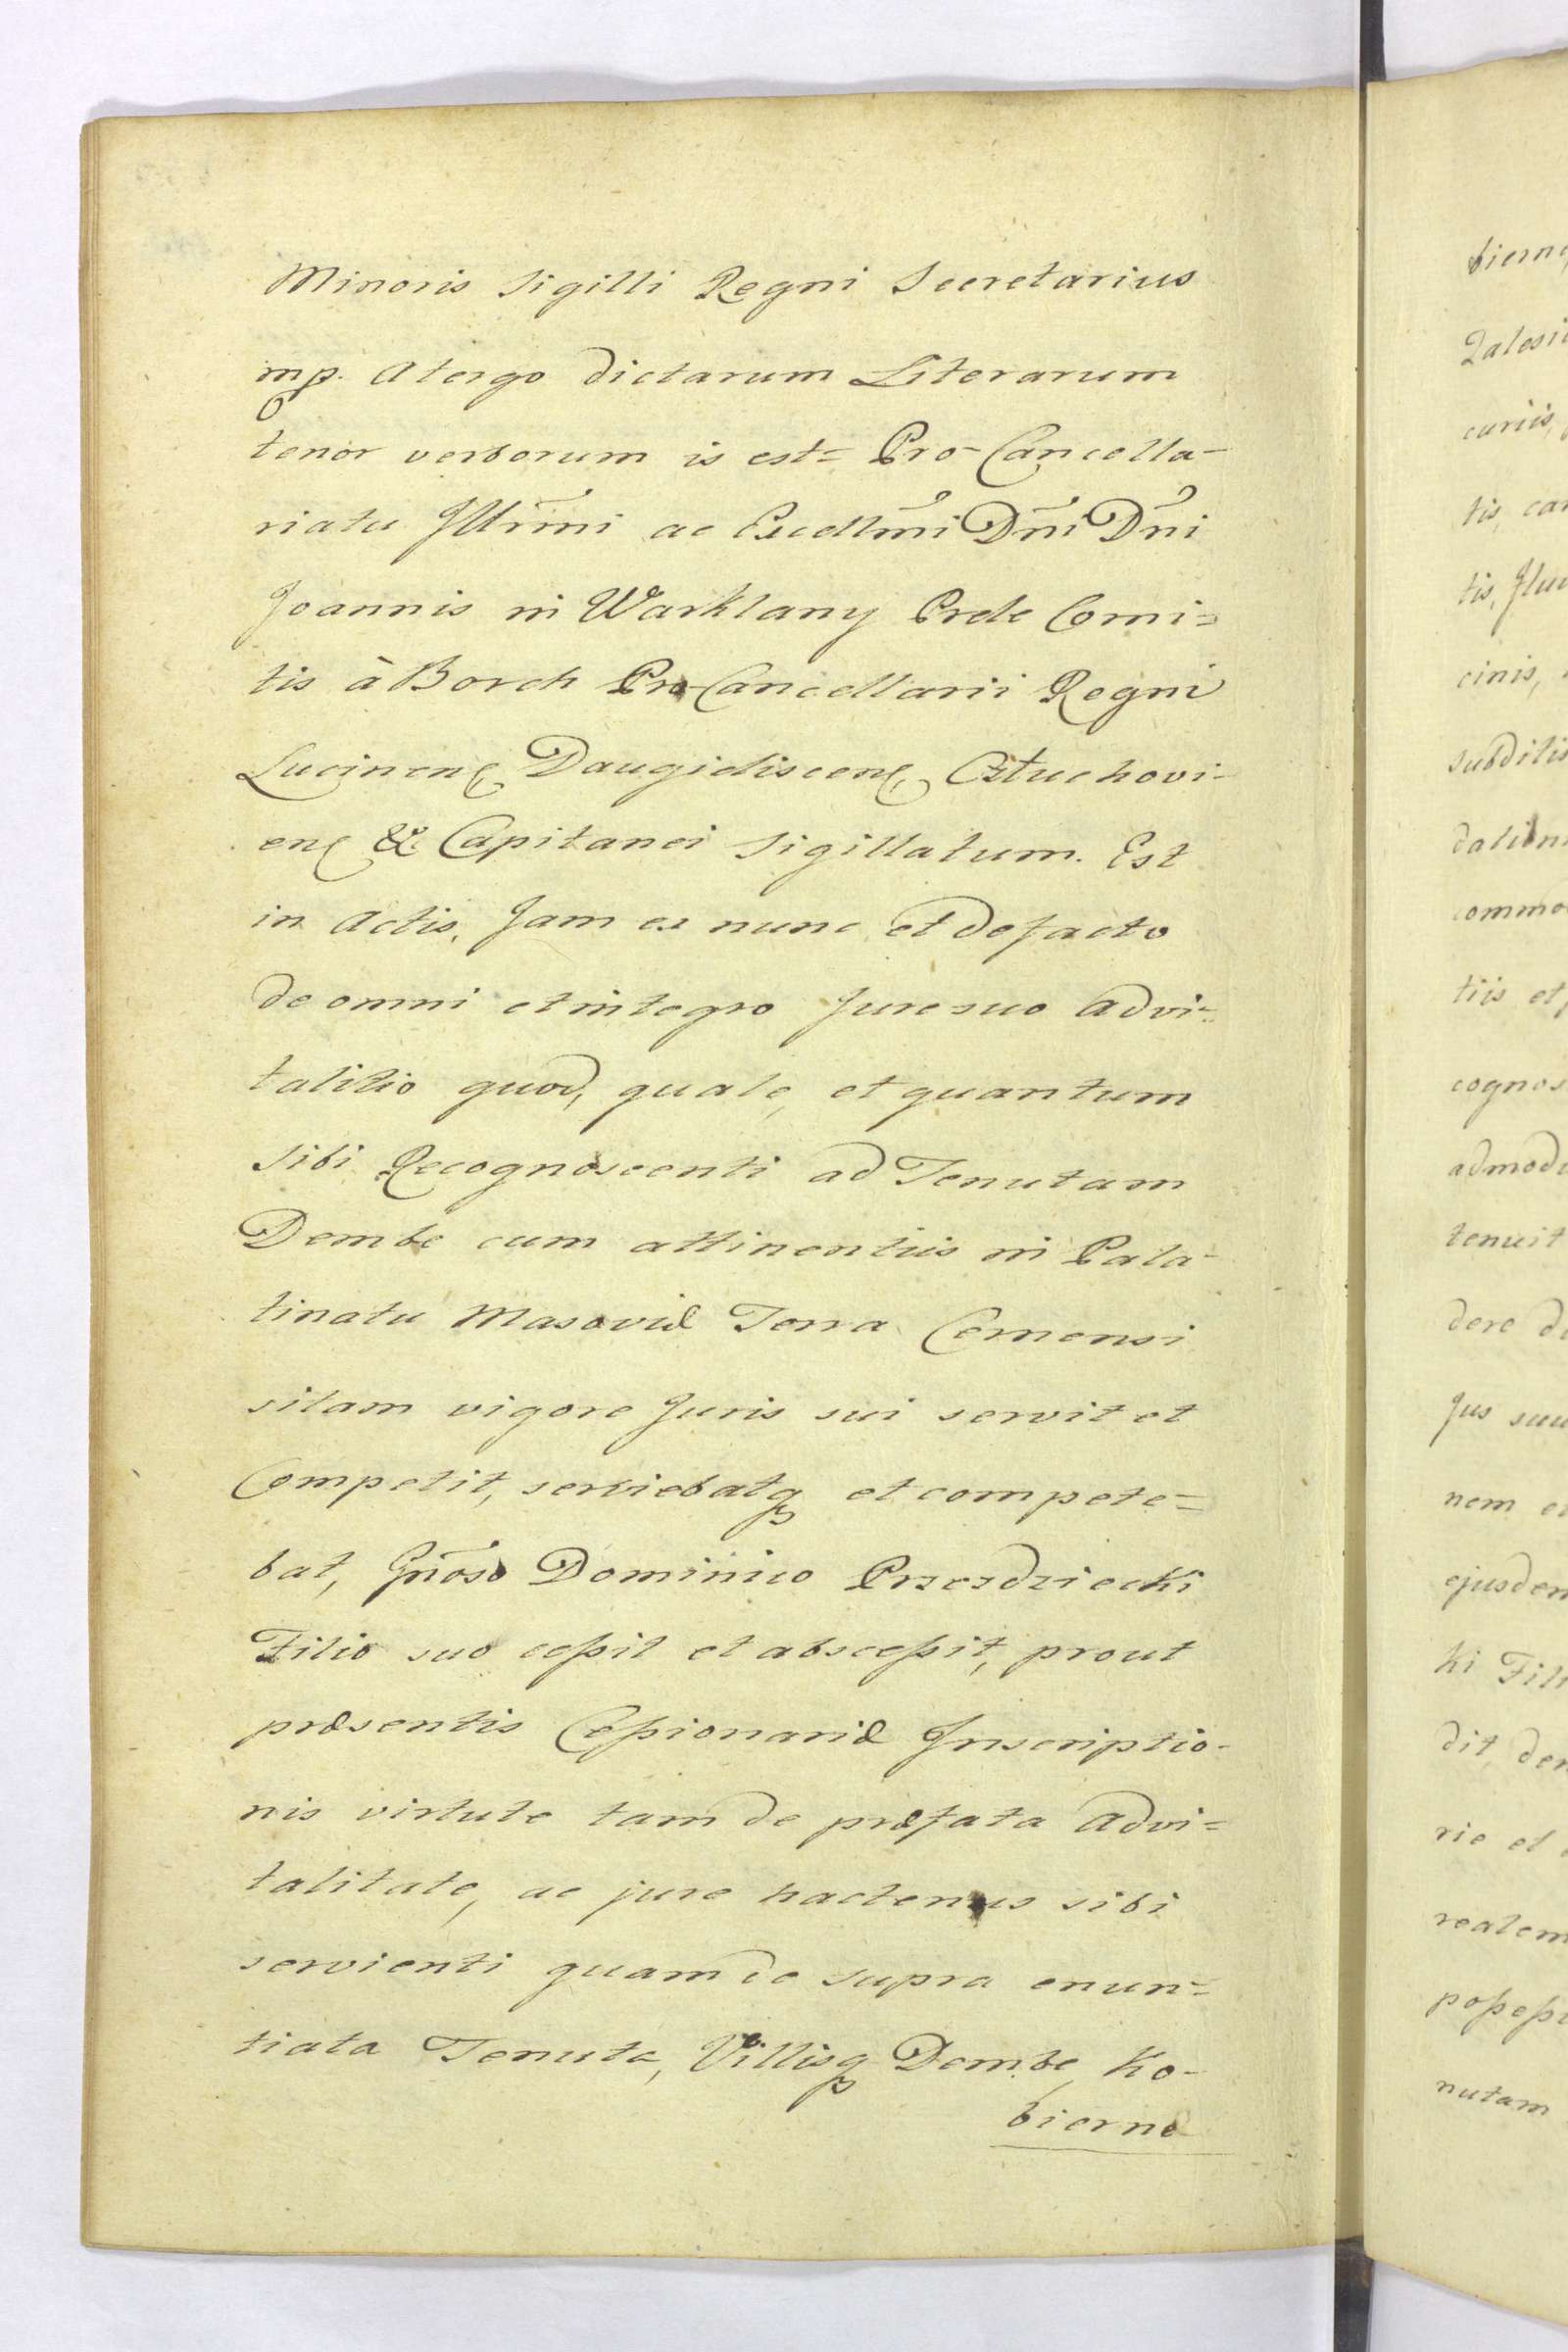 Minoris Sigilli Regni Secretarius
mp. A tergo dictarum Literarum
tenor verborum is est= Pro-Cancella-
riatu Jllr̃mi ac Excellm̃i Dn̄i Dn̄i
Joannis in Warklany Prele Comi=
tis à Borch Pro-Cancellarii Regni
Lucinen Daugieliscen, Oltuchovi-
en & Capitanei Sigillatum. Est
in Actis. Jam ex nunc et de facto
de omni et integro Jure suo Advi=
talitio quod, quale, et quantum
sibi Recognoscenti ad Tenutam
Dembe cum attinentiis in Pala-
tinatu Masoviæ Terra Cernensi
sitam vigore Juris sui servit et
Competit, serviebatq et compete=
bat, Gnõso Dominico Przezdziecki
Filio suo cessit et abscessit, prout
præsentis Cessionariæ Jnscriptio-
nis virtute tam de præfata Advi=
talitate, ac jure hactenus sibi
servienti quam de supra enun=
tiata Tenuta, Villisq Dembe Ko-
bierne
bierne
curiis,
tis, car
cinis,
subditis
commo
tiis et
cognos
admodu
tenuit
dere de
Jus suu
nem
ejusdem
ki Fili
dit, den
rie et
realem
possessi
nutam